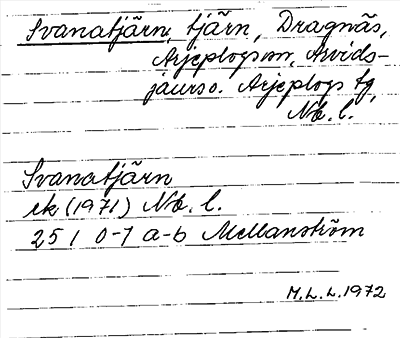 Svanatjärn, tjärn, Dragnäs,
Arjeplogs sn, Arvids-
jaurs o. Arjeplogs tg,
Nb. l.
Svanatjärn
ek (1971) Nb. l.
25 I 0-1 a-b Mellanström
M.L.L. 1972